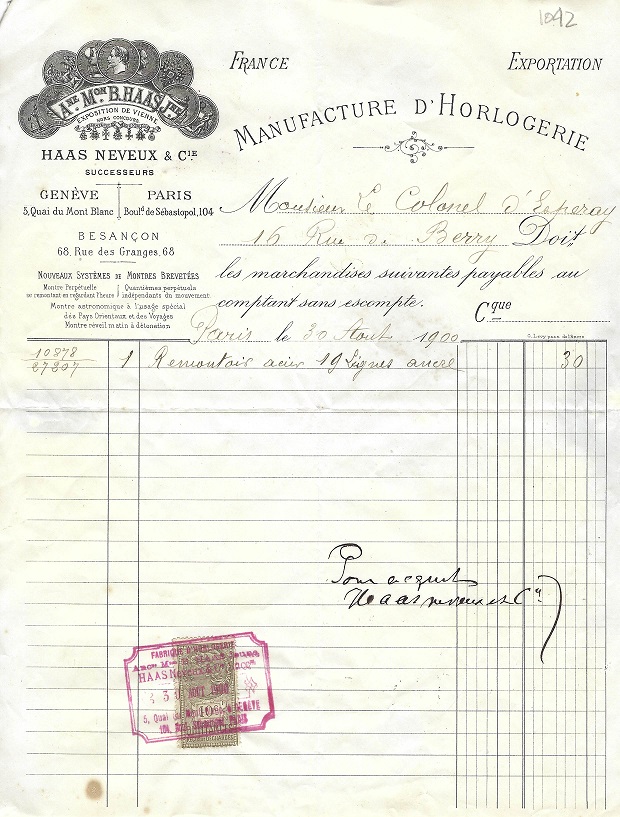 1042
FRANCE
EXPORTATION
ANNE MON B. HAAS JNE
EXPOSITION DE VIENNE
HORS CONCOURS
MANUFACTURE D'HORLOGERIE
HAAS NEVEUX & CIE
SUCCESSEURS
GENÈVE PARIS
5, Quai du Mont Blanc Bould de Sébastopol, 104
BESANÇON
68, Rue des Granges, 68
NOUVEAUX SYSTÈMES DE MONTRES BREVETÉES
Montre Perpétuelle
se remontant en regardant l'heure
Quantièmes perpétuels
indépendants du mouvement
Montre astronomique à l'usage spécial
des Pays Orientaux et des Voyages
Montre réveil matin à détonation
Monsieur Le Colonel d'Esperay
16 Rue de Berry Doit
les marchandises suivantes payables au
comptant sans escompte. Cque
Paris le 30 Aout 1900
10878
27207
1 Remontoir acier 19 Lignes ancre 30
Pour acquit
Haas neveux et Cie
FABRIQUE D'HORLOGERIE
Ancne Mon B. HAAS Jeune
HAAS Neveux
30 AOUT 1900
5, Quai du GENÈVE
104,
10c